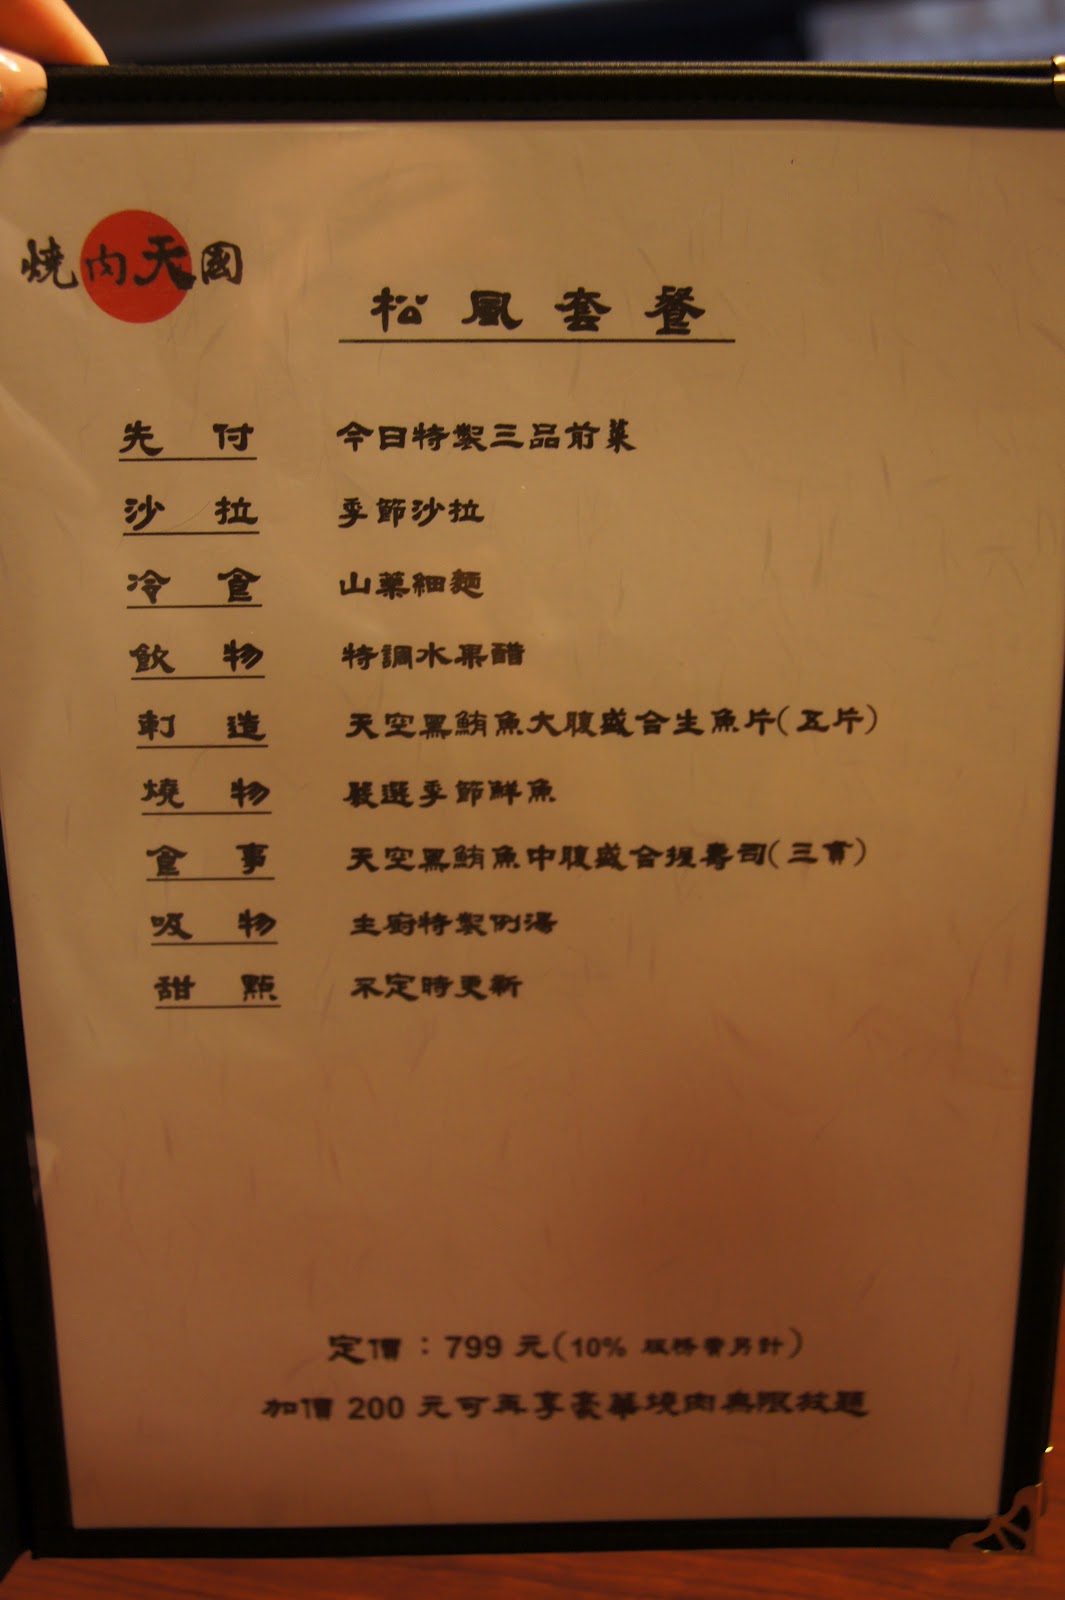 燒肉天國
松風套餐
先付 今日特製三品前菜
沙拉 季節沙拉
冷食 山藥細麵
飲物 特調水果醋
刺造 天空黑鮪魚大腹盛合生魚片(五片)
燒物 嚴選季節鮮魚
食事 天空黑鮪魚中腹盛合握壽司(三貫)
吸物 主廚特製例湯
甜點 不定時更新
定價：799 元(10% 服務費另計)
加價 200 元可再享豪華燒肉無限放題